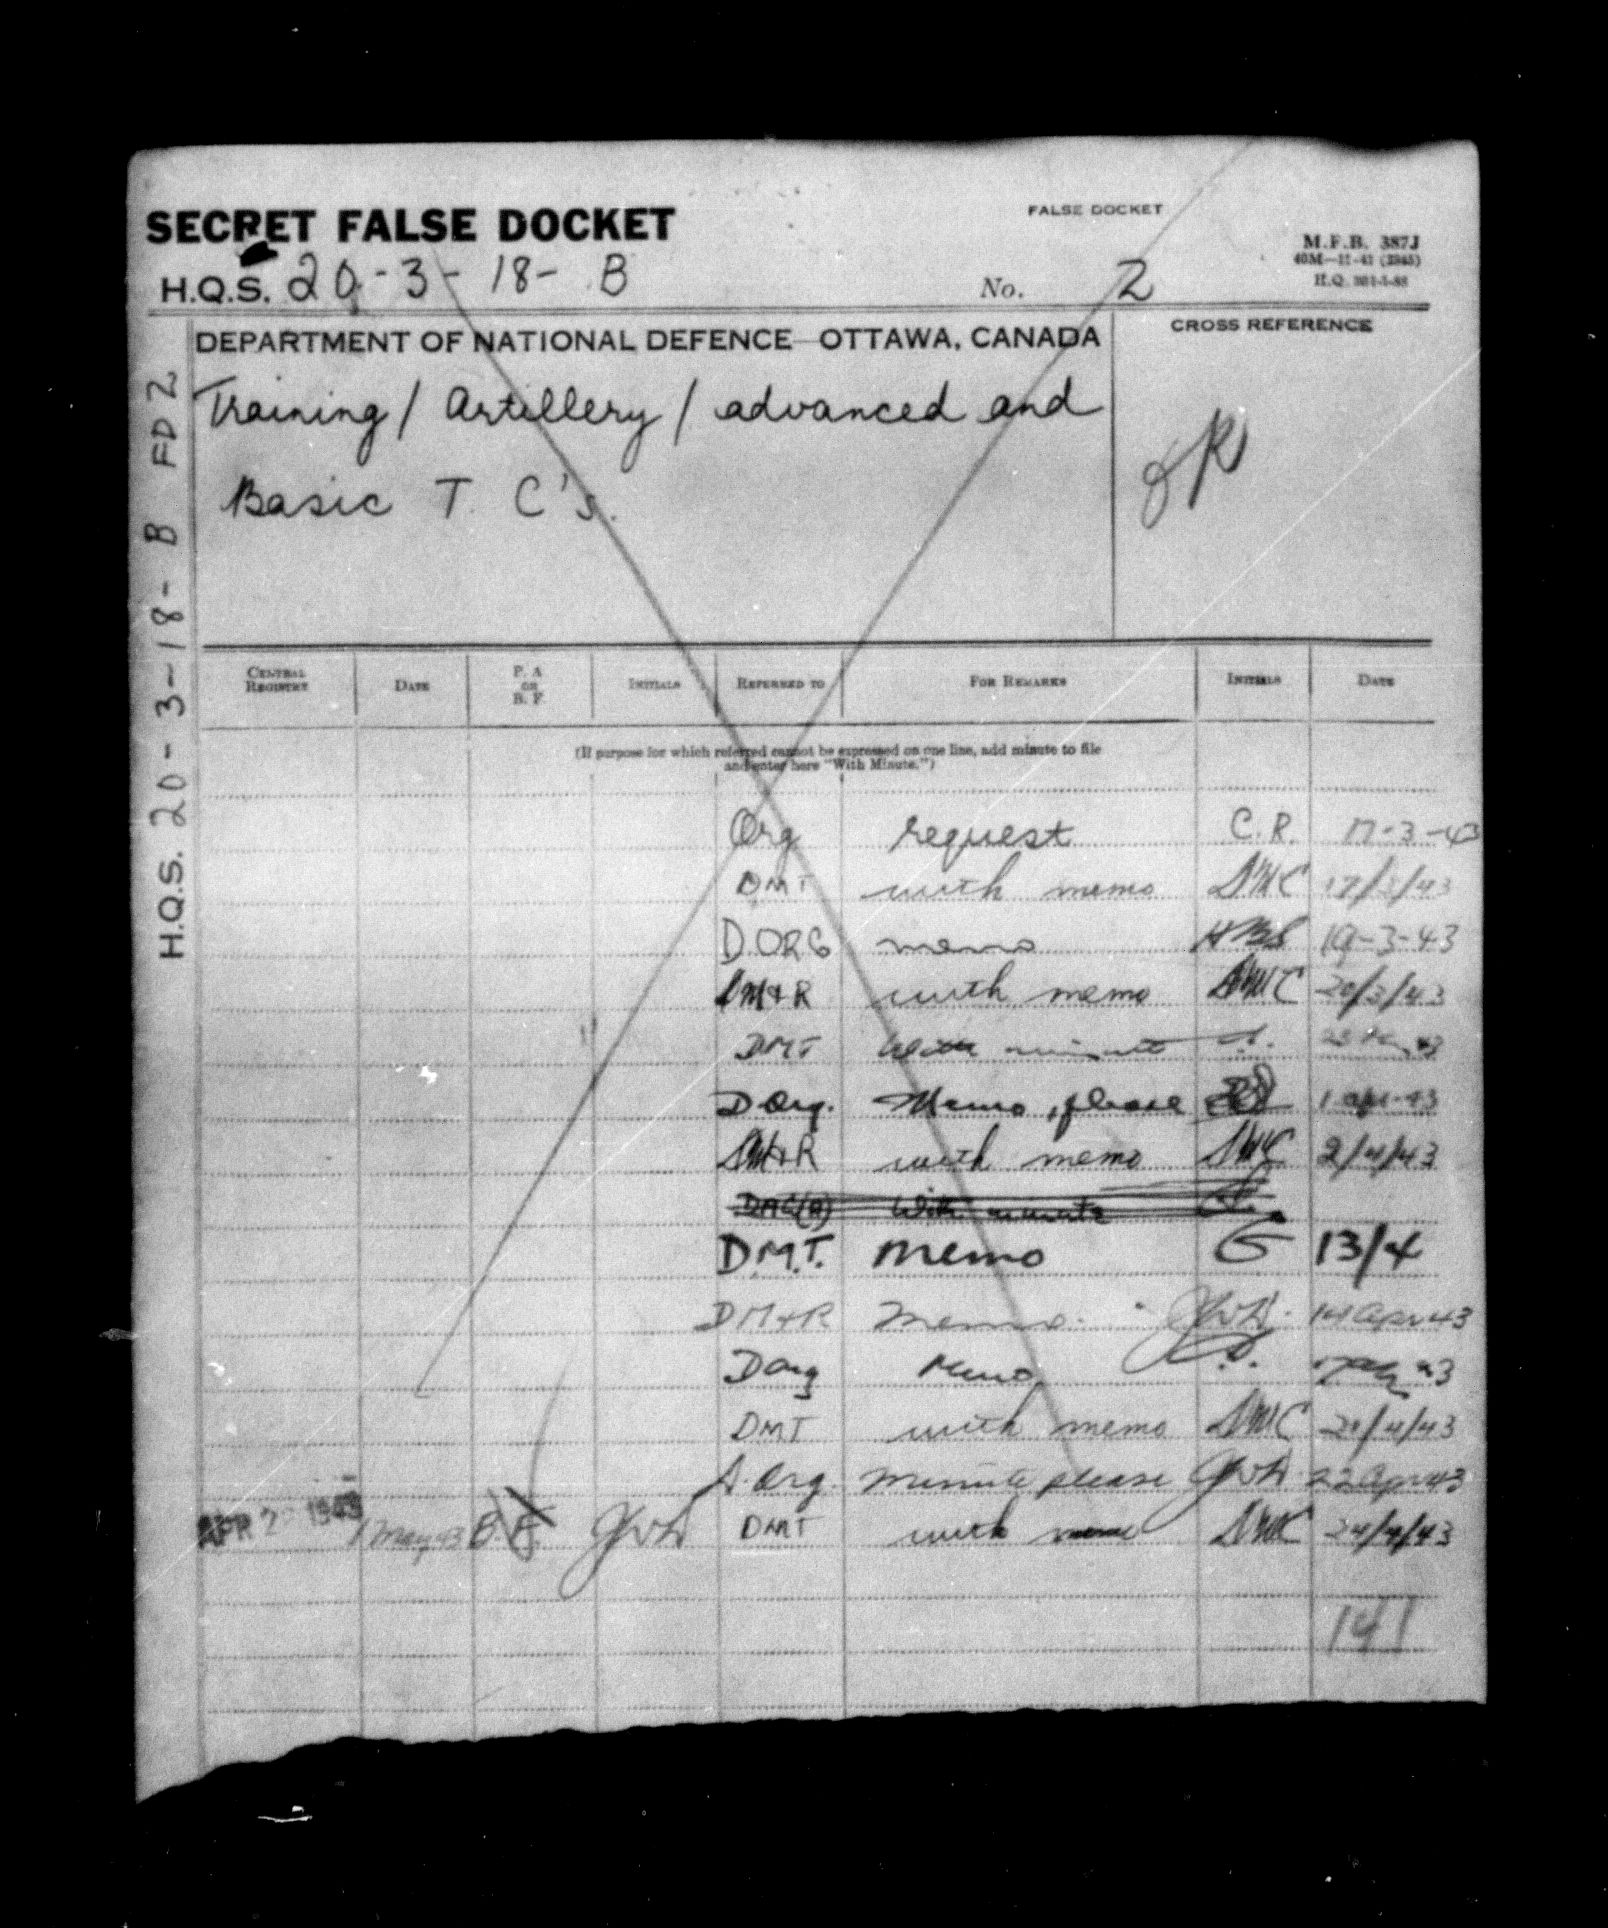 SECRET FALSE DOCKET
FALSE DOCKET
M.F.B. 387J
40M—11-41 (2345)
H.Q.
H.Q.S. 20-3-18- B
No. 2
DEPARTMENT OF NATIONAL DEFENCE OTTAWA, CANADA
CROSS REFERENCE
Training / Artillery / advanced and
Basic T. C's.
H.Q.S. 20-3-18- B FD 2
CENTRAL REGISTRY DATE P. A OR B. F. INITIALS REFERRED TO FOR REMARKS INITIALS DATE
(If purpose for which referred cannot be expressed on one line, add minute to file
and enter here "With Minute.")
Org request C.R. 17-3-43
DMT with memo DMC 17/3/43
D.ORG memo 19-3-43
DM+R with memo DMC 20/3/43
DMT with minute
D Org. Memo, please 1 apr-43
DM+R with memo DMC 2/4/43
With minute
D.M.T. memo G 13/4
DM+R Memo. 14 Apr 43
D Org Memo
DMT with memo DMC 21/4/43
D. Org. Minute please 22 Apr 43
APR 1943 1 May 43 B.F. DMT with DMC 24/4/43
141